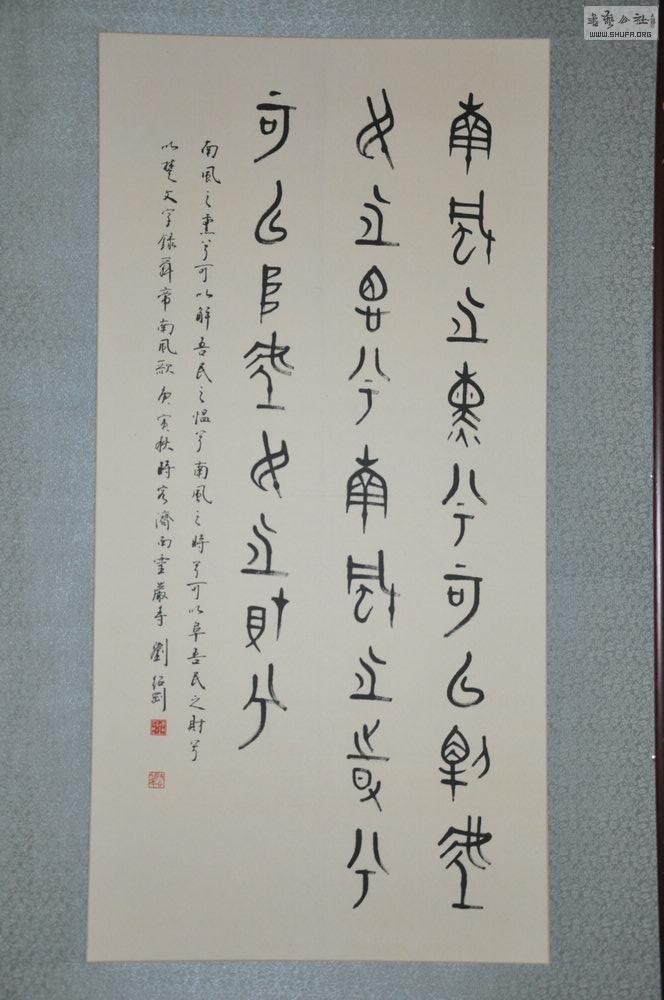 南風之熏兮可以解吾
民之慍兮南風之時兮
可以阜吾民之財兮
南風之熏兮可以解吾民之愠兮南風之時兮可以阜吾民之財兮
以楚文字錄舜帝南風歌 庚寅秋時客濟南靈巖寺 劉紹剛
書藝公社
WWW.SHUFA.ORG